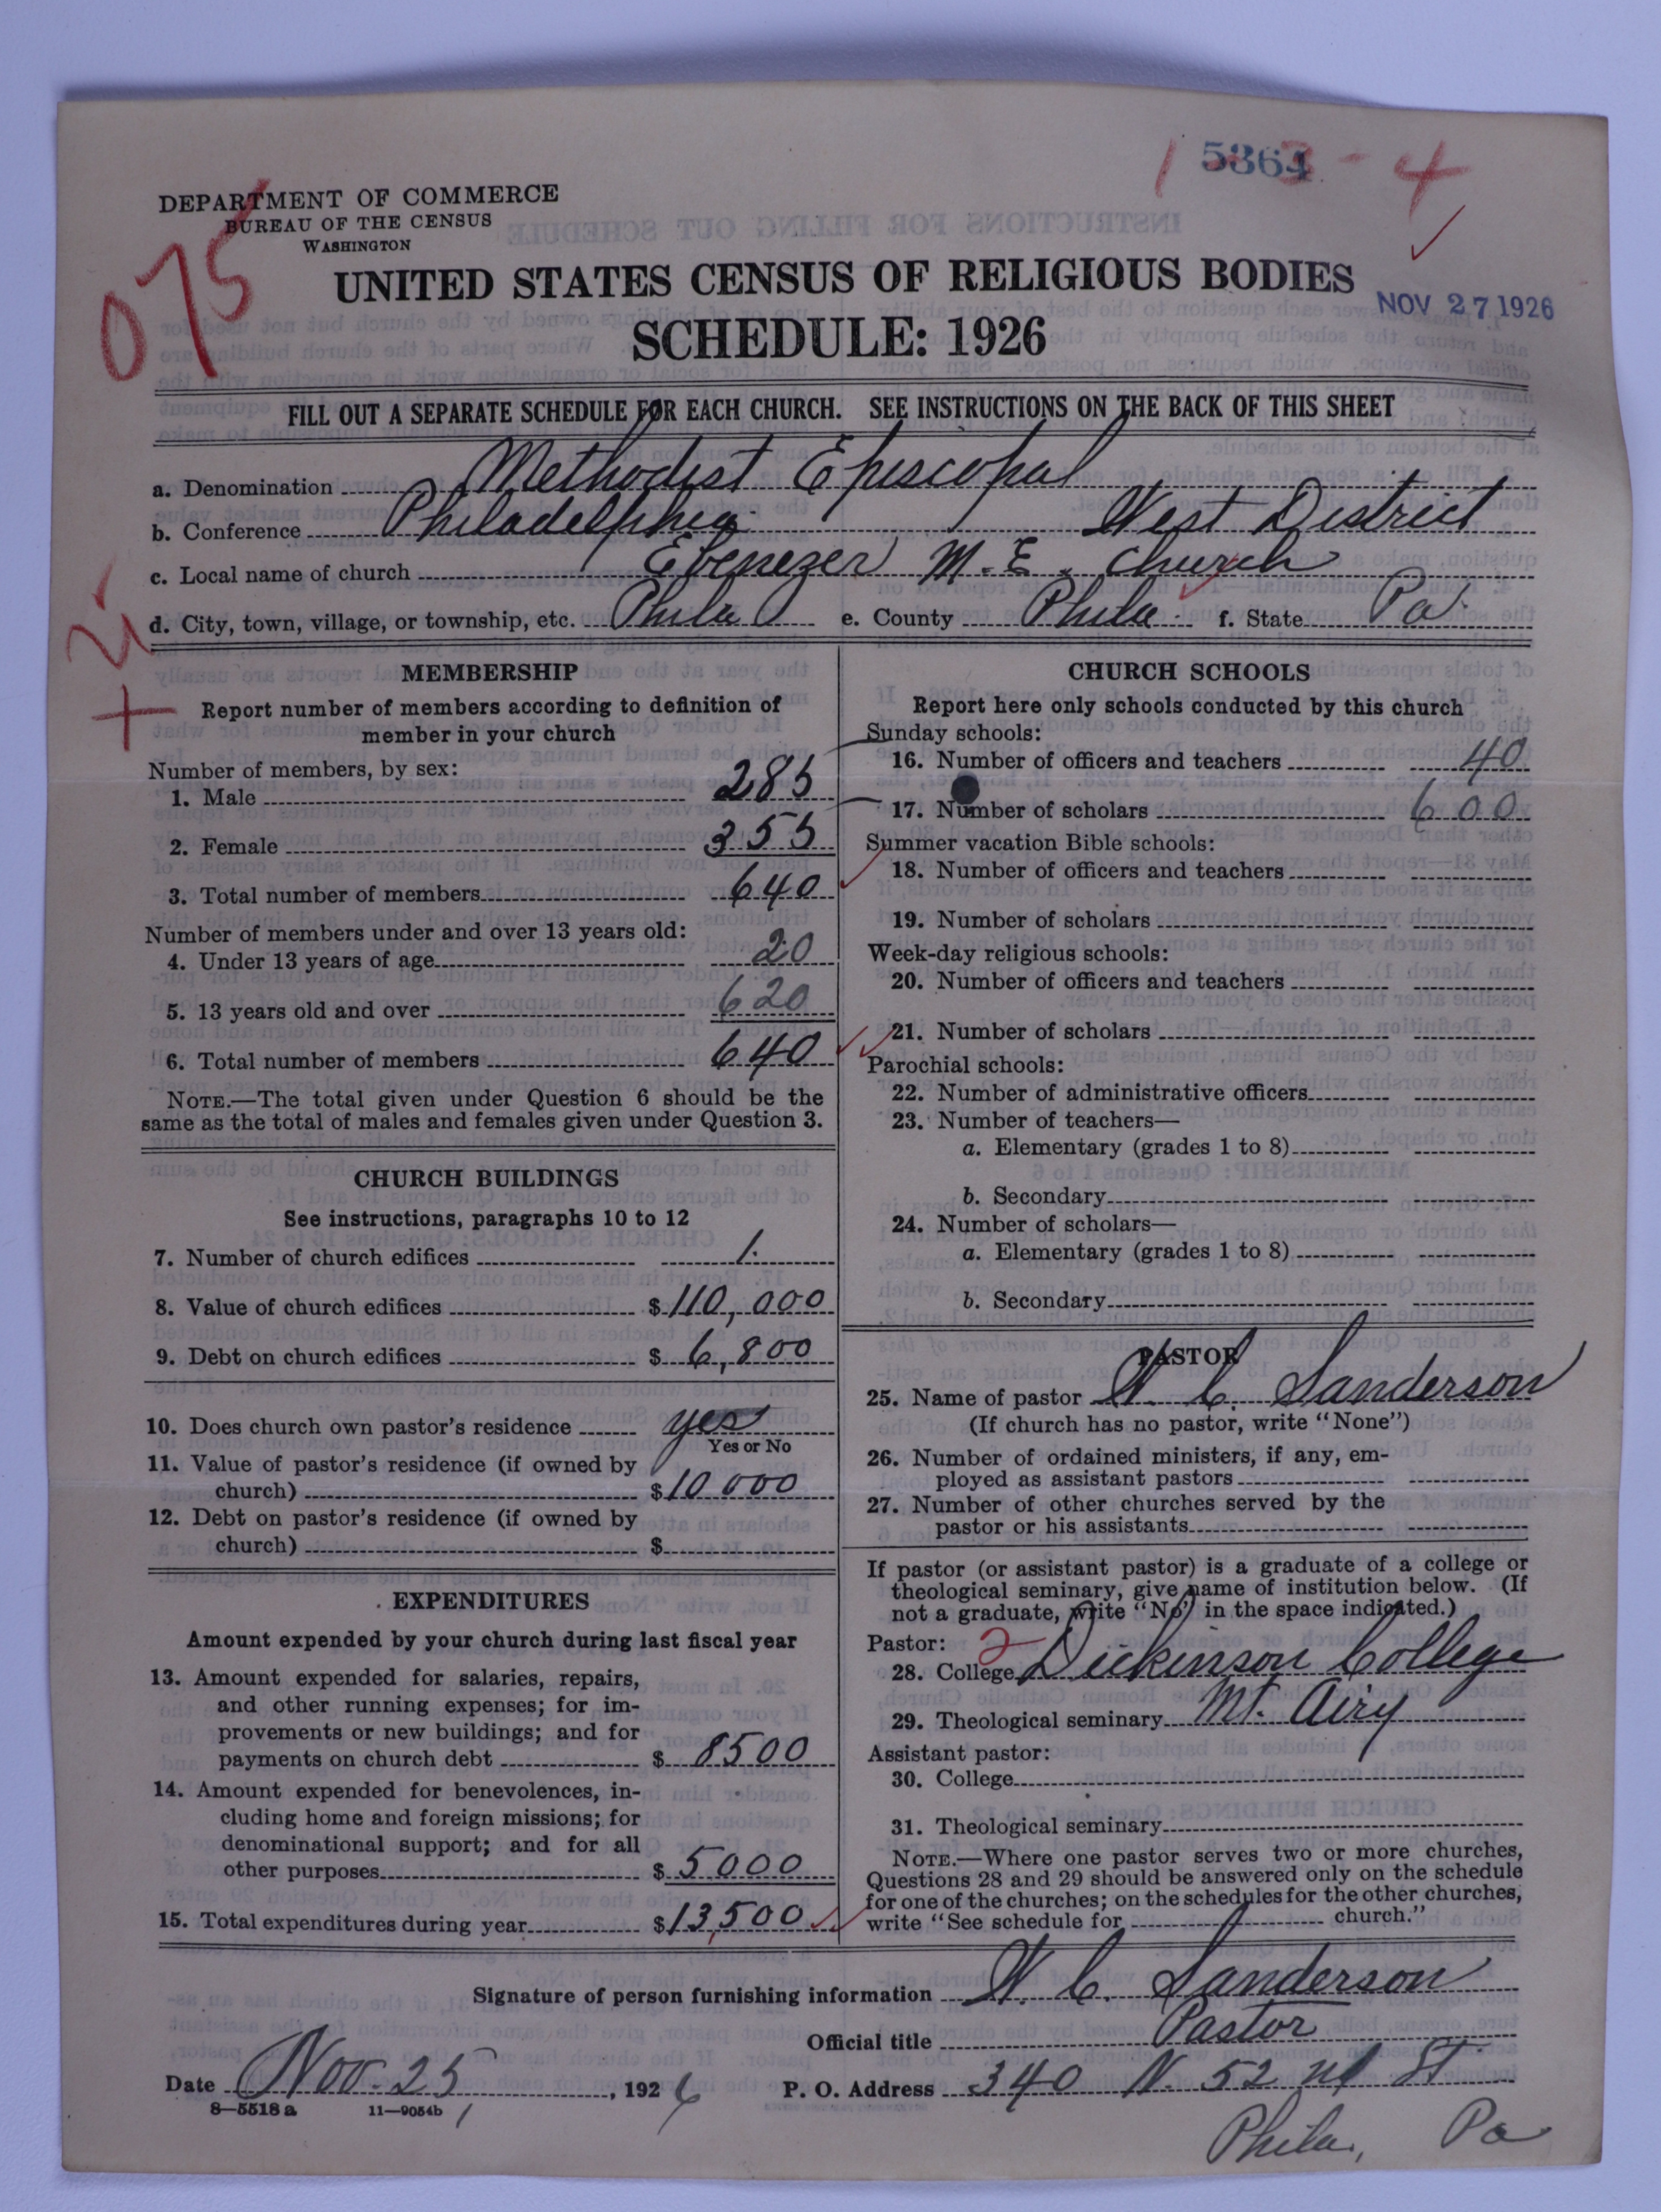 5364
1 3 - 4
DEPARTMENT OF COMMERCE
BUREAU OF THE CENSUS
WASHINGTON
075
UNITED STATES CENSUS OF RELIGIOUS BODIES
NOV 27 1926
SCHEDULE: 1926
FILL OUT A SEPARATE SCHEDULE FOR EACH CHURCH. SEE INSTRUCTIONS ON THE BACK OF THIS SHEET
a. Denomination Methodist Episcopal
b. Conference Philadelphia West District
c. Local name of church Ebenezer M. E. Church
d. City, town, village, or township, etc. Phila e. County Phila f. State Pa.
MEMBERSHIP
Report number of members according to definition of
member in your church
Number of members, by sex:
1. Male 285
2. Female 355
3. Total number of members 640
Number of members under and over 13 years old:
4. Under 13 years of age 20
5. 13 years old and over 620
6. Total number of members 640
NOTE.—The total given under Question 6 should be the
same as the total of males and females given under Question 3.
CHURCH BUILDINGS
See instructions, paragraphs 10 to 12
7. Number of church edifices 1.
8. Value of church edifices $110,000
9. Debt on church edifices $ 6,800
10. Does church own pastor's residence yes
Yes or No
11. Value of pastor's residence (if owned by
church) $10 000
12. Debt on pastor's residence (if owned by
church) $
EXPENDITURES
Amount expended by your church during last fiscal year
13. Amount expended for salaries, repairs,
and other running expenses; for im-
provements or new buildings; and for
payments on church debt $ 8500
14. Amount expended for benevolences, in-
cluding home and foreign missions; for
denominational support; and for all
other purposes $ 5000
15. Total expenditures during year $13,500
CHURCH SCHOOLS
Report here only schools conducted by this church
Sunday schools:
16. Number of officers and teachers 40
17. Number of scholars 600
Summer vacation Bible schools:
18. Number of officers and teachers
19. Number of scholars
Week-day religious schools:
20. Number of officers and teachers
21. Number of scholars
Parochial schools:
22. Number of administrative officers
23. Number of teachers—
a. Elementary (grades 1 to 8)
b. Secondary
24. Number of scholars—
a. Elementary (grades 1 to 8)
b. Secondary
PASTOR
25. Name of pastor W. C. Sanderson
(If church has no pastor, write "None")
26. Number of ordained ministers, if any, em-
ployed as assistant pastors
27. Number of other churches served by the
pastor or his assistants
If pastor (or assistant pastor) is a graduate of a college or
theological seminary, give name of institution below. (If
not a graduate, write "No" in the space indicated.)
Pastor: 2
28. College Dickinson College
29. Theological seminary Mt. Airy
Assistant pastor:
30. College
31. Theological seminary
NOTE.—Where one pastor serves two or more churches,
Questions 28 and 29 should be answered only on the schedule
for one of the churches; on the schedules for the other churches,
write "See schedule for church."
Signature of person furnishing information W. C. Sanderson
Official title Pastor
Date Nov. 25, 1926 P. O. Address 340 N. 52 nd St
8—5518 a 11—9054b
Phila., Pa